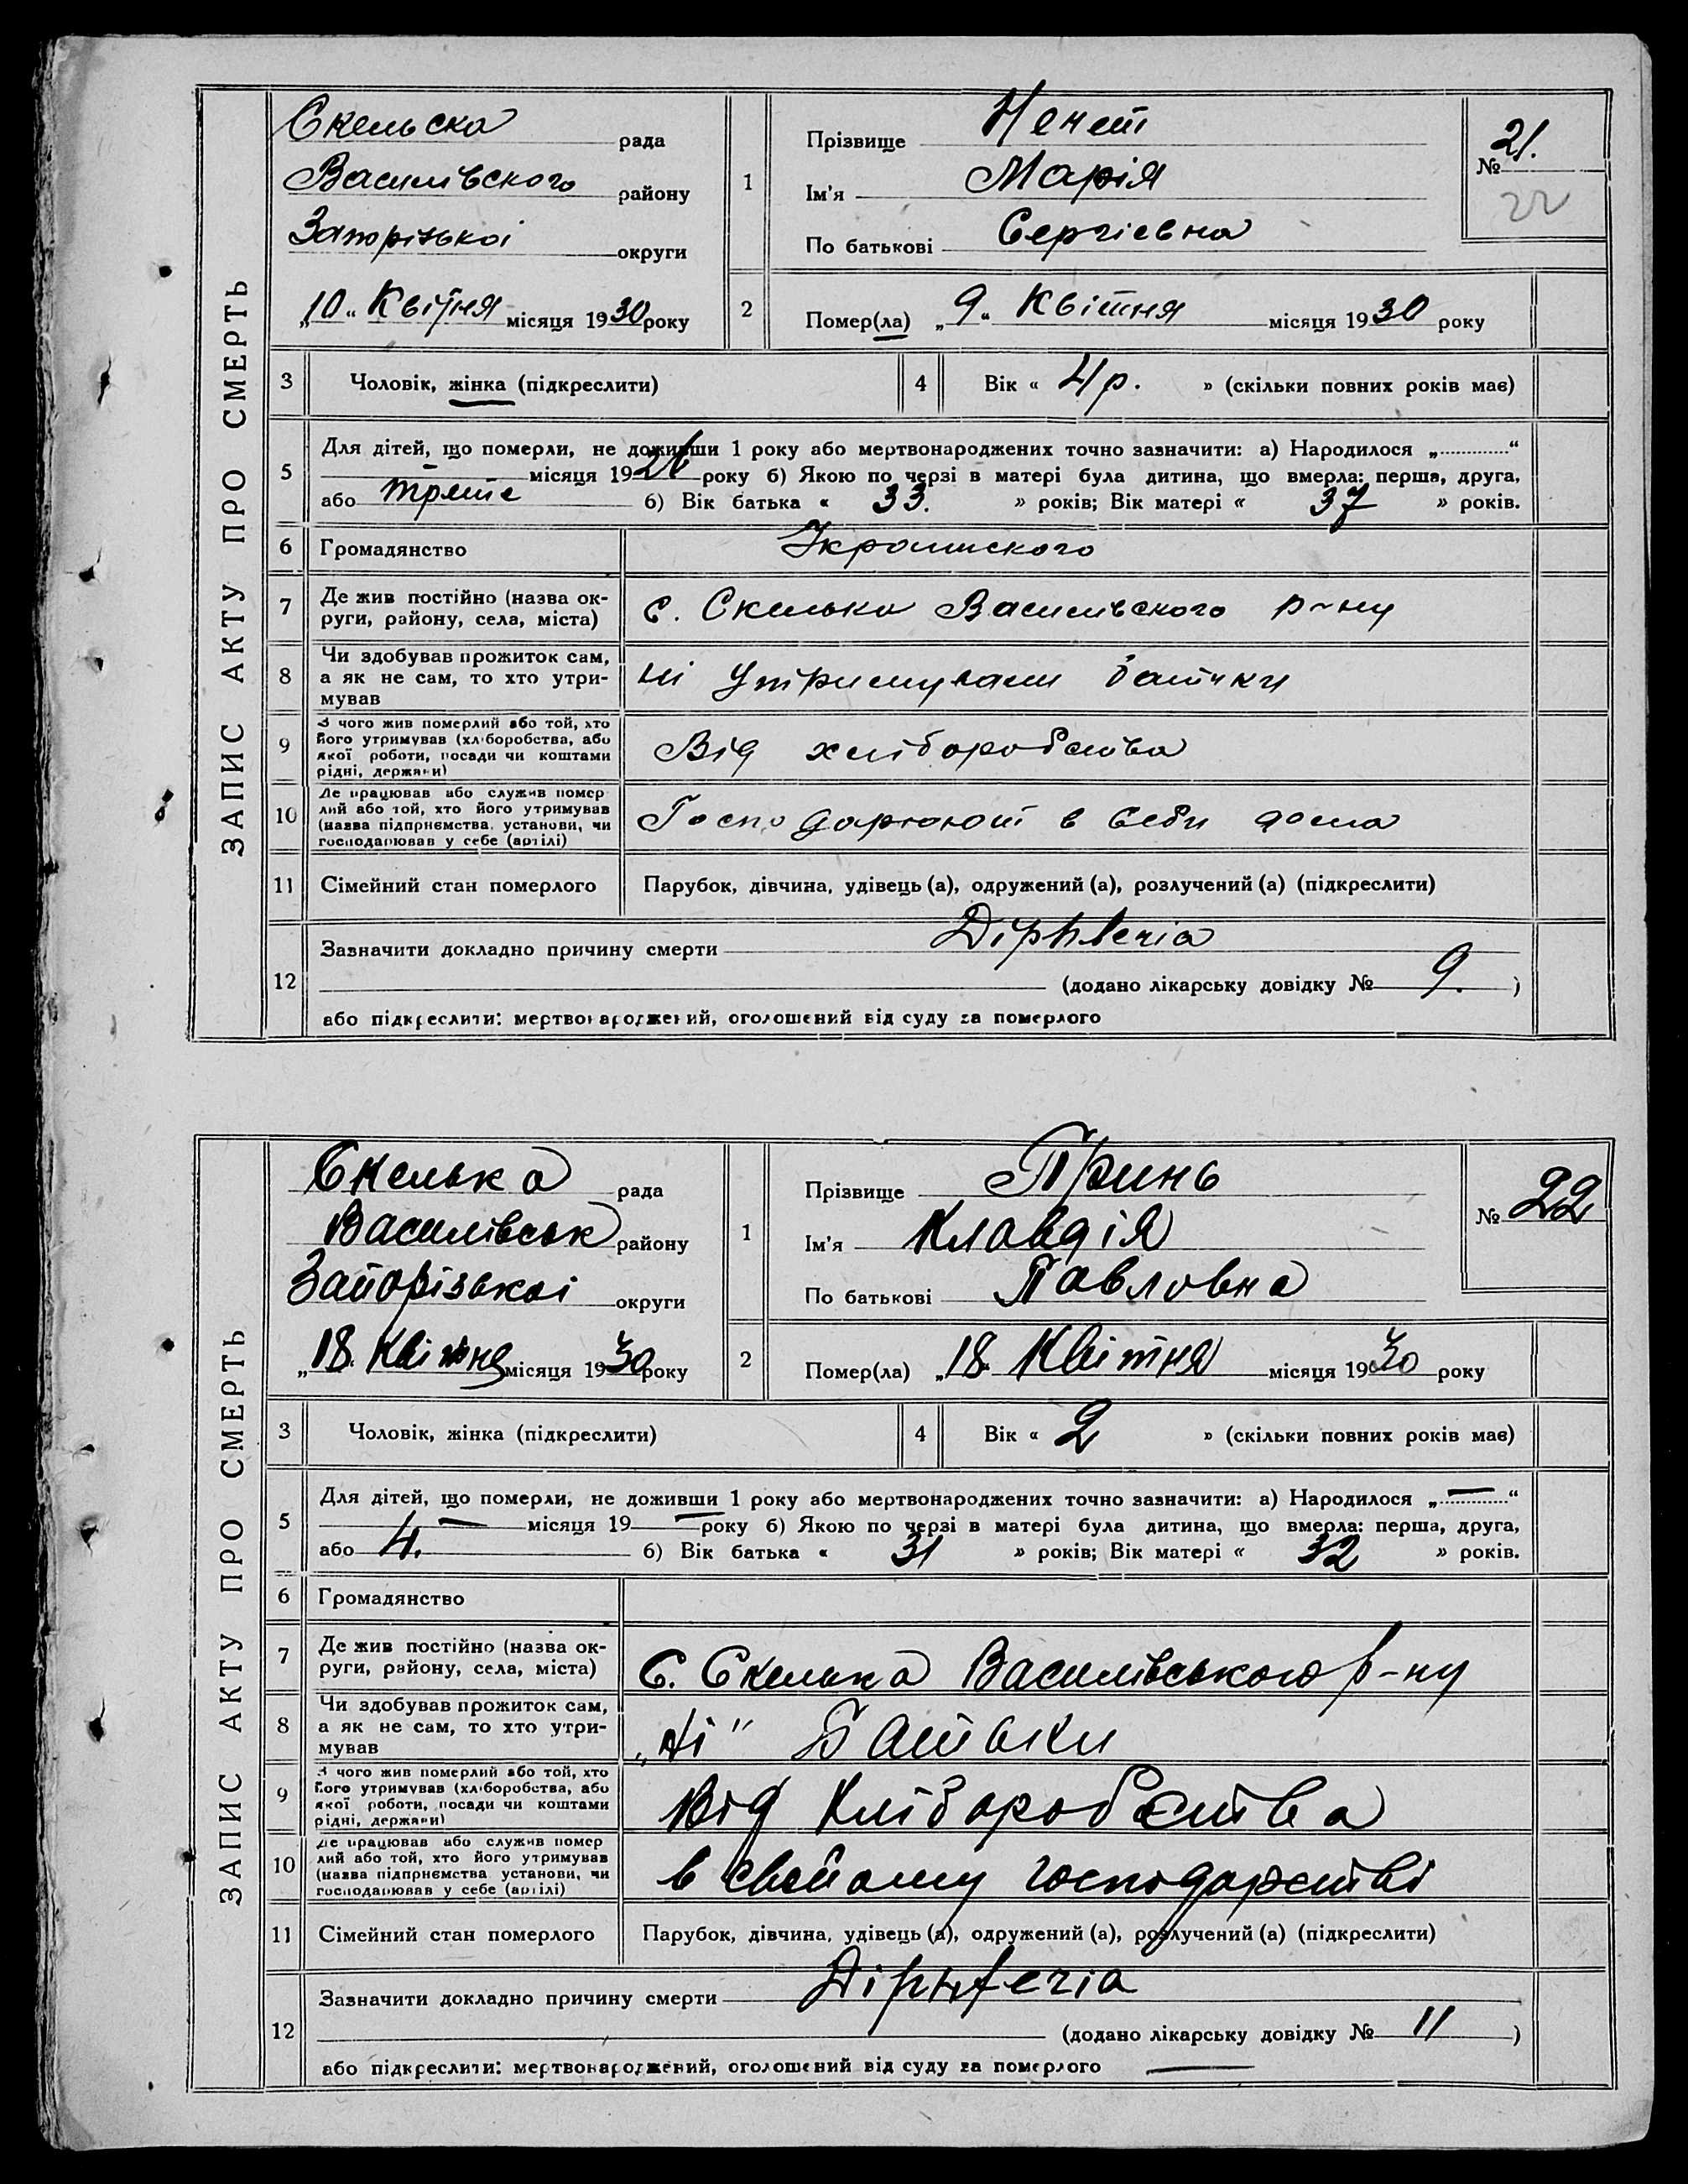 ЗАПИС АКТУ ПРО СМЕРТЬ
Скельска рада
Василівского району
Запорізькоі округи
„10“ Квітня місяця 1930 року
1
Прізвище Нечет
Ім'я Марія
По батькові Сергієвна
№ 21.
22
2
Помер(ла) „9“ Квітня місяця 1930 року
3 Чоловік, жінка (підкреслити)
4 Вік « 4 р. » (скільки повних років має)
5 Для дітей, що померли, не доживши 1 року або мертвонароджених точно зазначити: а) Народилося „............“
- місяця 1926 року б) Якою по черзі в матері була дитина, що вмерла: перша, друга,
або трете б) Вік батька « 33. » років; Вік матері « 37 » років.
6 Громадянство Українського
7 Де жив постійно (назва ок-
руги, району, села, міста) с. Скелька Василівского р-ну
8 Чи здобував прожиток сам,
а як не сам, то хто утри-
мував ні Утримували батьки
9 З чого жив померлий або той, хто
його утримував (хліборобства, або
якої роботи, посади чи коштами
рідні, держави) Від хліборобства
10 Де працював або служив помер
лий або той, хто його утримував
(назва підприємства, установи, чи
господарював у себе (артілі) Господарюють в себи дома
11 Сімейний стан померлого Парубок, дівчина, удівець (а), одружений (а), розлучений (а) (підкреслити)
12 Зазначити докладно причину смерти Diphteria
(додано лікарську довідку № 9. )
або підкреслити: мертвонароджений, оголошений від суду за померлого
ЗАПИС АКТУ ПРО СМЕРТЬ
Скелька рада
Василівськ району
Запорізькоі округи
„18. Квітня місяця 1930 року
1
Прізвище Принь
Ім'я Клавдія
По батькові Павловна
№ 22
2
Помер(ла) „18. Квітня місяця 1930 року
3 Чоловік, жінка (підкреслити)
4 Вік « 2 » (скільки повних років має)
5 Для дітей, що померли, не доживши 1 року або мертвонароджених точно зазначити: а) Народилося „—“
— місяця 19— року б) Якою по черзі в матері була дитина, що вмерла: перша, друга,
або 4. б) Вік батька « 31 » років; Вік матері « 32 » років.
6 Громадянство
7 Де жив постійно (назва ок-
руги, району, села, міста) С. Скелька Василівського р-ну
8 Чи здобував прожиток сам,
а як не сам, то хто утри-
мував „ні" Батьки
9 З чого жив померлий або той, хто
його утримував (хліборобства, або
якої роботи, посади чи коштами
рідні, держави) Від Хліборобства
10 Де працював або служив помер
лий або той, хто його утримував
(назва підприємства установи, чи
господарював у себе (артілі) в свойому господарстві
11 Сімейний стан померлого Парубок, дівчина, удівець (а), одружений (а), розлучений (а) (підкреслити)
12 Зазначити докладно причину смерти Diphteria
(додано лікарську довідку № 11 )
або підкреслити: мертвонароджений, оголошений від суду за померлого —